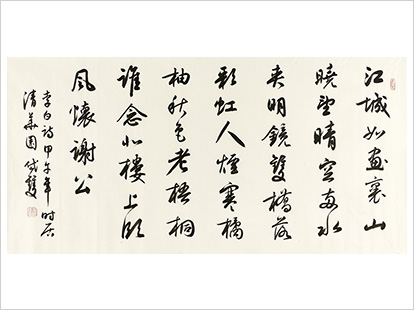 江城如畫裏山
曉望晴空兩水
夾明鏡雙橋落
彩虹人煙寒橘
柚秋色老梧桐
誰念北樓上臨
風懷謝公
李白詩甲午年時居
清華園